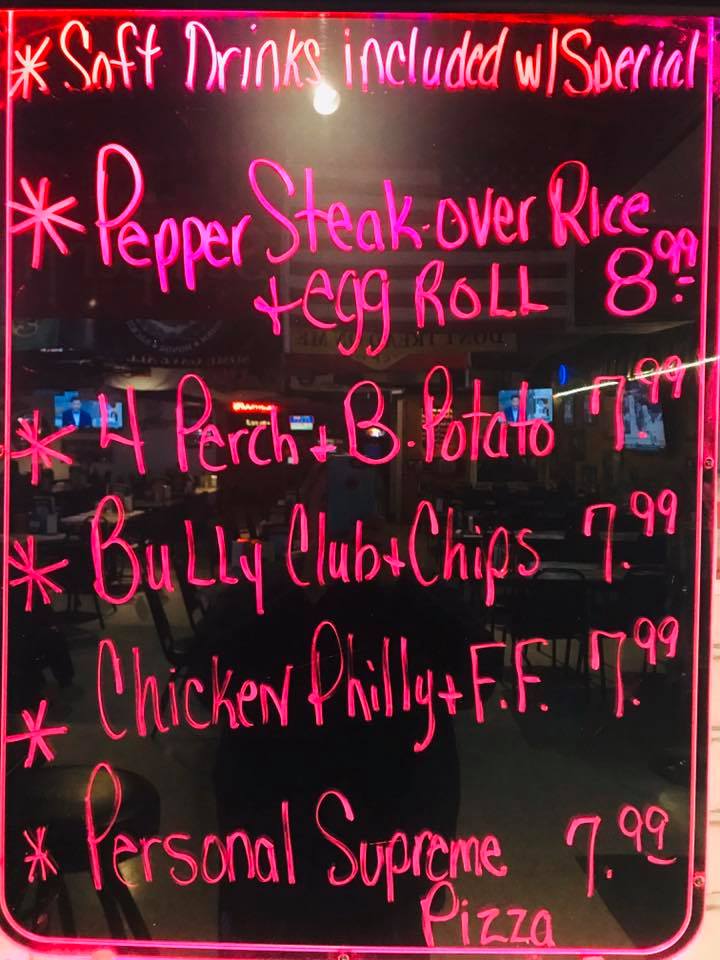 * Soft Drinks included w/Special
* Pepper Steak over Rice
+ egg Roll 8.99
* 4 Perch + B. Potato 7.99
* Bully Club + Chips 7.99
* Chicken Philly + F.F. 7.99
* Personal Supreme 7.99
Pizza